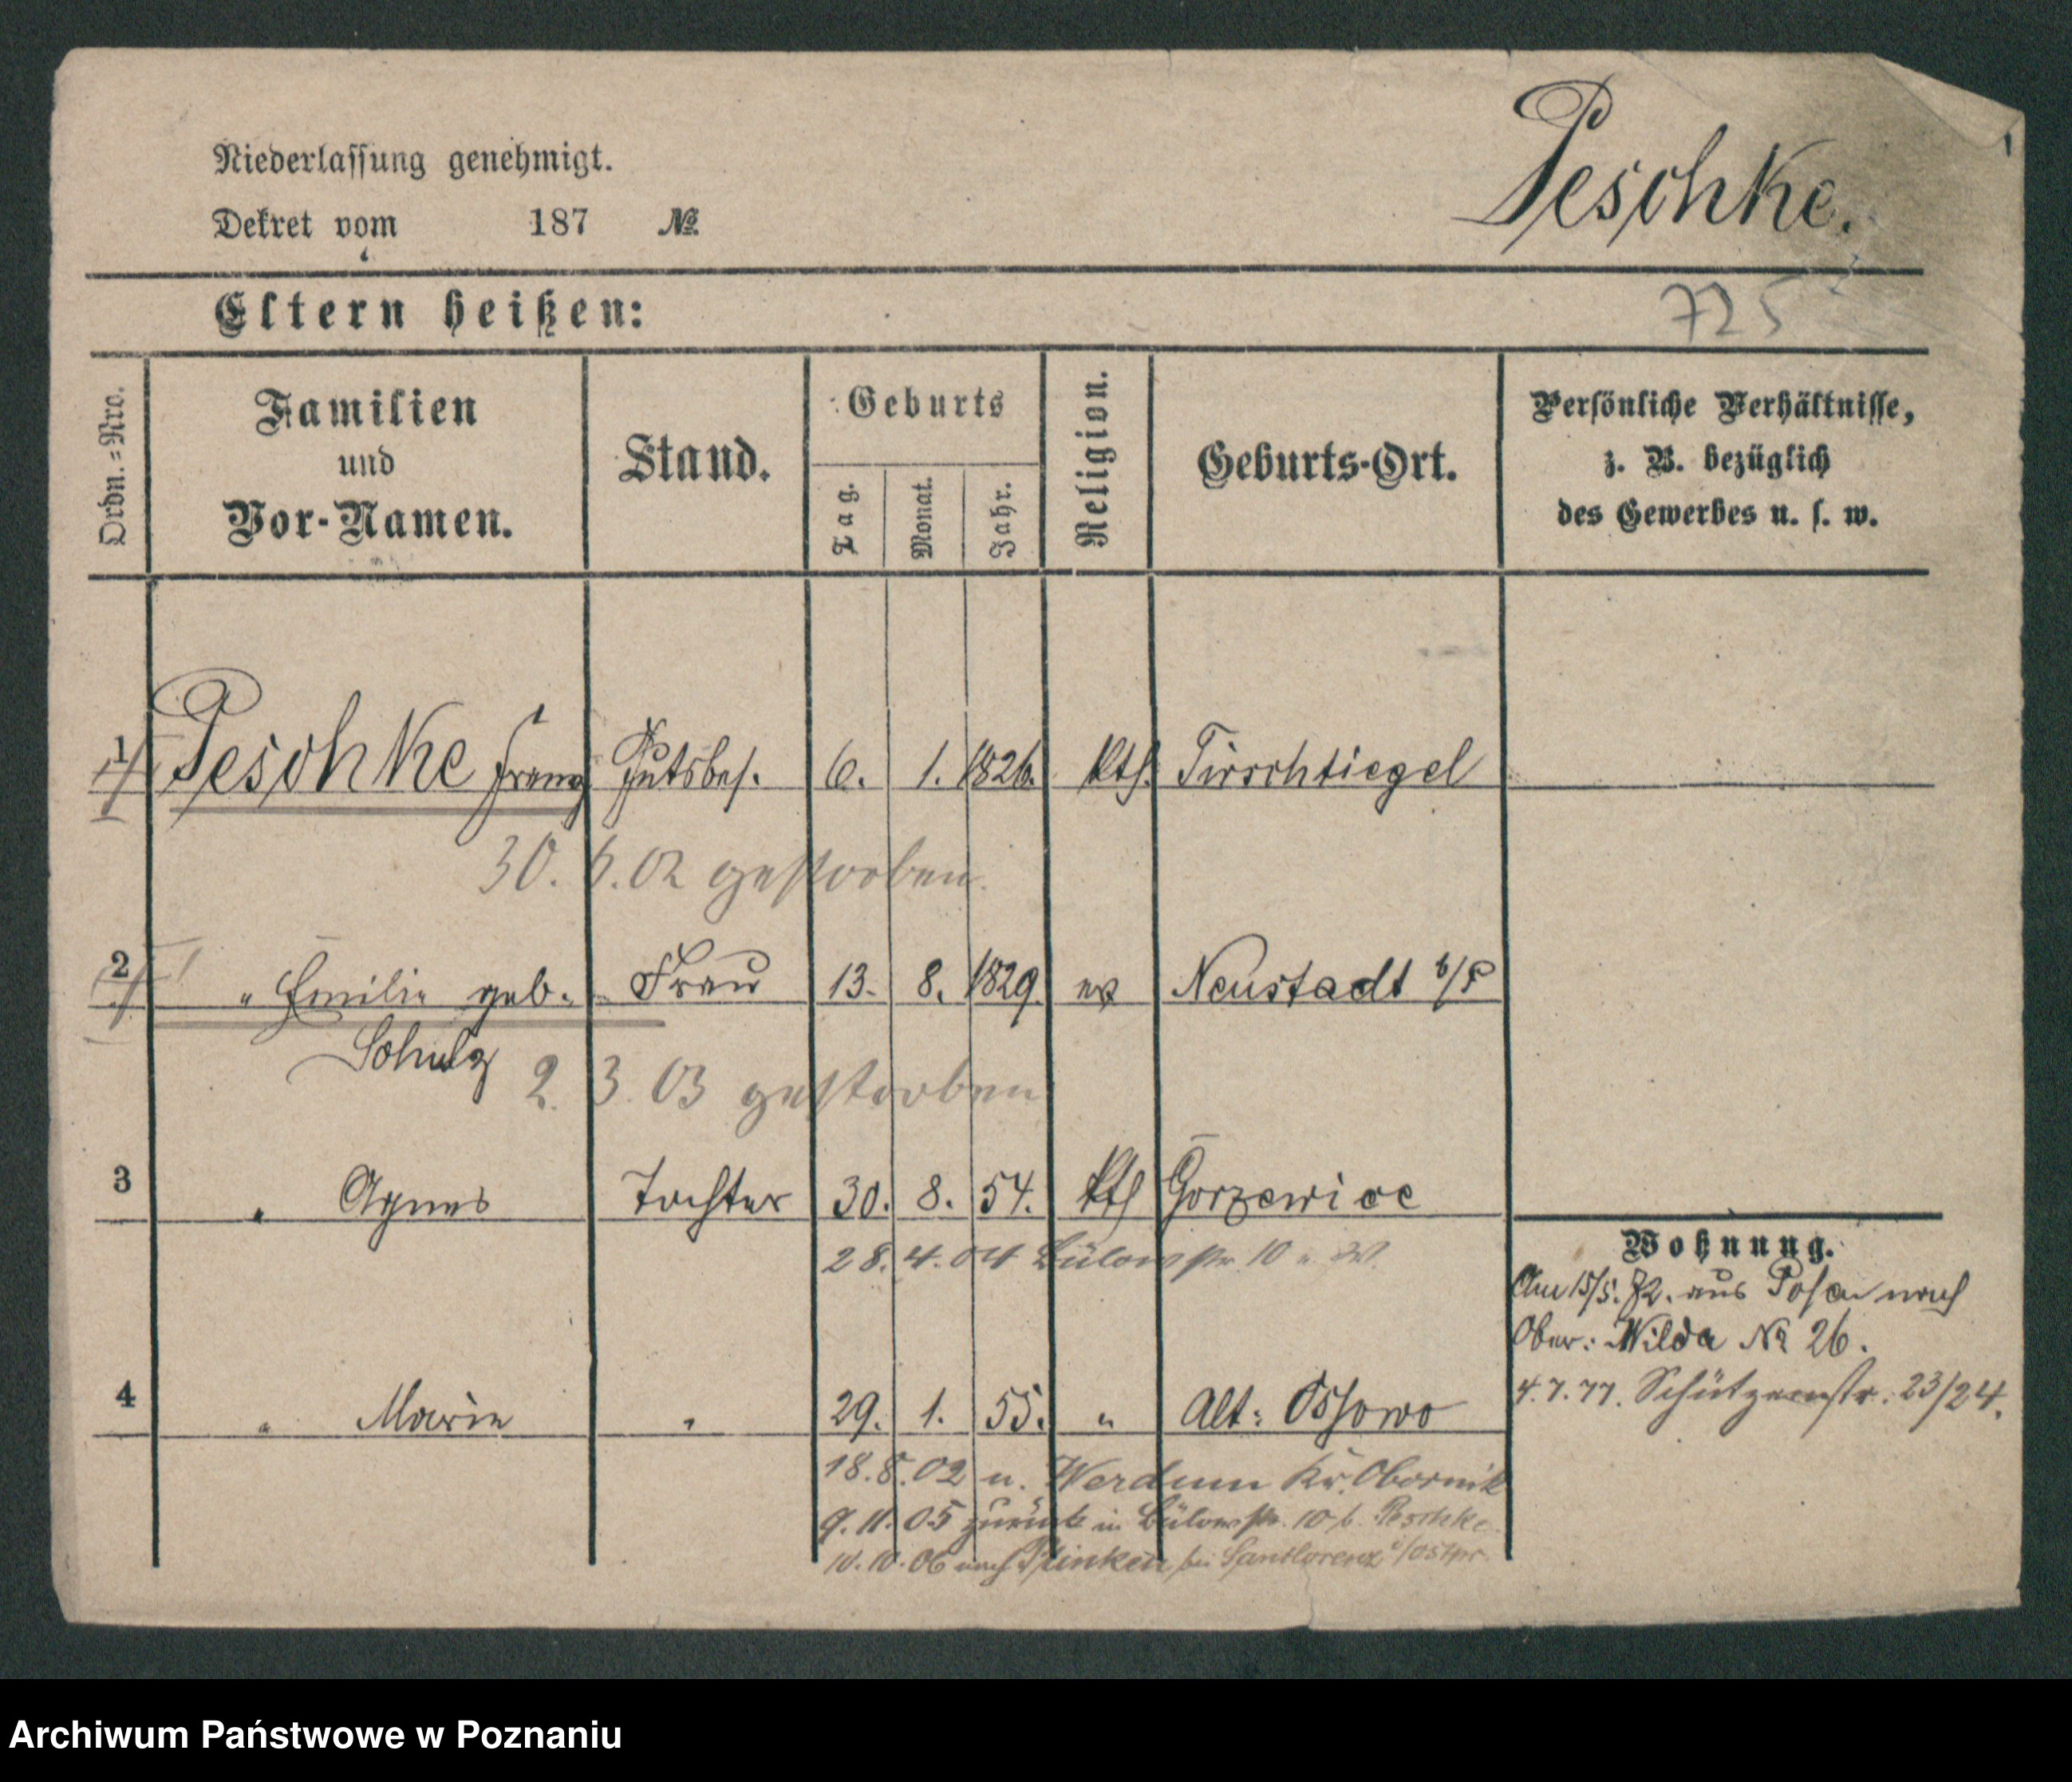 Niederlassung genehmigt.
Peschke.
Dekret vom 187 №
Eltern heißen:
725
Ordn.=Nro.
Familien
und
Vor-Namen.
Stand.
Geburts
Tag.
Monat.
Jahr.
Religion.
Geburts-Ort.
Persönliche Verhältnisse,
z. B. bezüglich
des Gewerbes u. s. w.
1 Peschke Franz Gutsbes. 6. 1. 1826. kth. Tirschtiegel
30. 6.02 gestorben.
2 " Emilie geb. Frau 13. 8. 1829. ev Neustadt b/P
Schulz
2. 3. 03 gestorben
3 " Agnes Tochter 30. 8. 54. kth Gorzewice
28. 4. 04 Bülowstr. 10 " W.
4 " Marie " 29. 1. 55. " Alt: Ossowo
18.8.02 n. Werdum Kr. Obornik
9.11.05 zurück in Bülowstr. 10 b. Peschke.
10.10.06 nach bei Sanktlorenz i/Ostpr.
Wohnung.
Am 15/5. 72. aus Posen nach
Ober: Wilda № 26.
4.7.77. Schützenstr. 23/24.
Archiwum Państwowe w Poznaniu